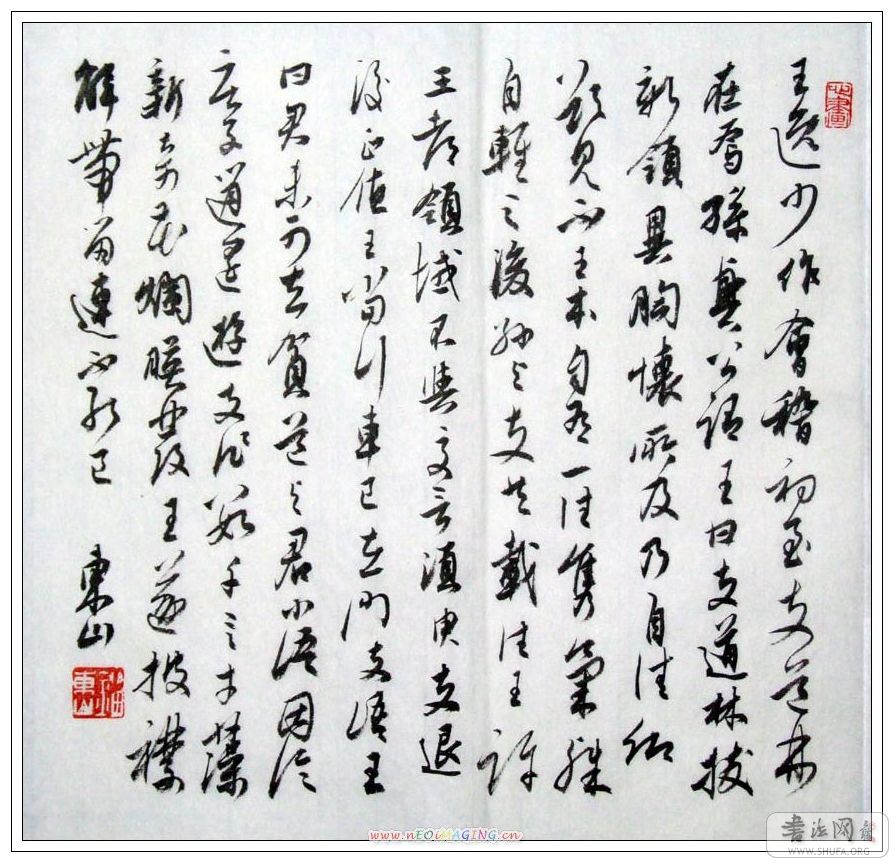 王逸少作會稽初至支道林
在焉孫興公謂王曰支道林拔
新領異胸懷所及乃自佳卿
欲見不王本自有一往雋氣殊
自輕之後孫與支共載往王許
王都領域不與交言須臾支退
後正值王當行車已在門支語王
曰君未可去貧道與君小語因論
莊子逍遙遊支作數千言才藻
新奇花爛映發王遂披襟
解帶留連不能已
東山
www.nEOiMAGiNG.cn
書法网
WWW.SHUFA.ORG